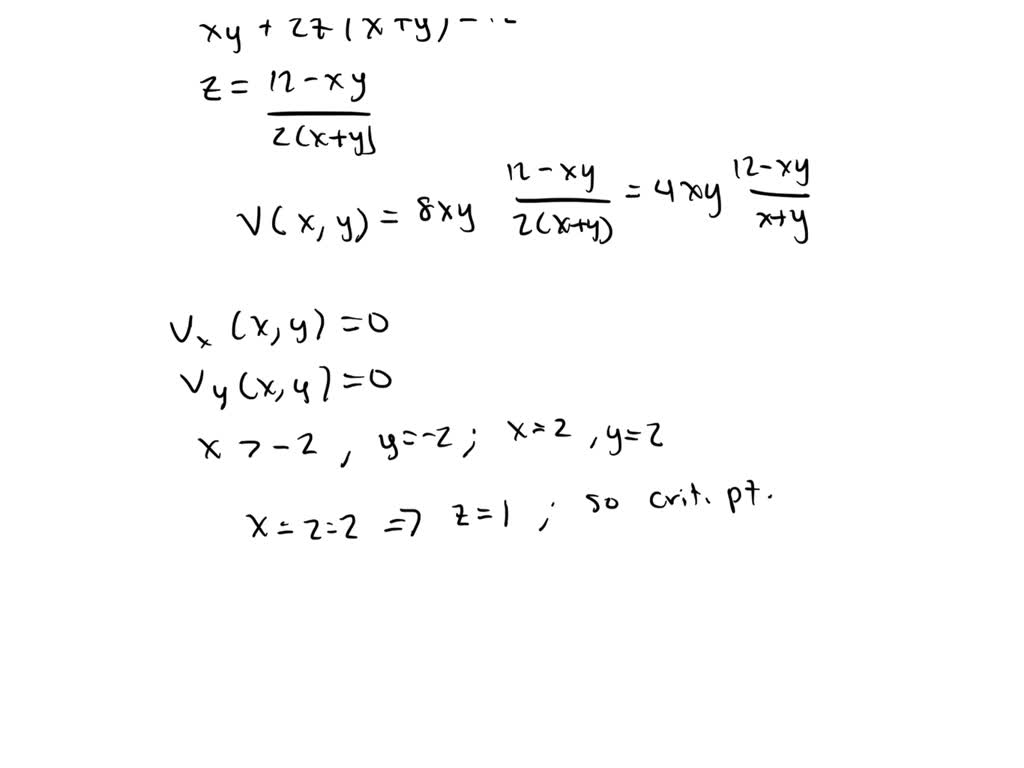 xy + 2z(x+y) = ...
z = \frac{12-xy}{2(x+y)}
V(x,y) = 8xy \frac{12-xy}{2(x+y)} = 4xy \frac{12-xy}{x+y}
V_x (x,y) = 0
V_y (x,y) = 0
x > -2, y=-2; x=2, y=2
x=2=2 => z=1; so crit. pt.